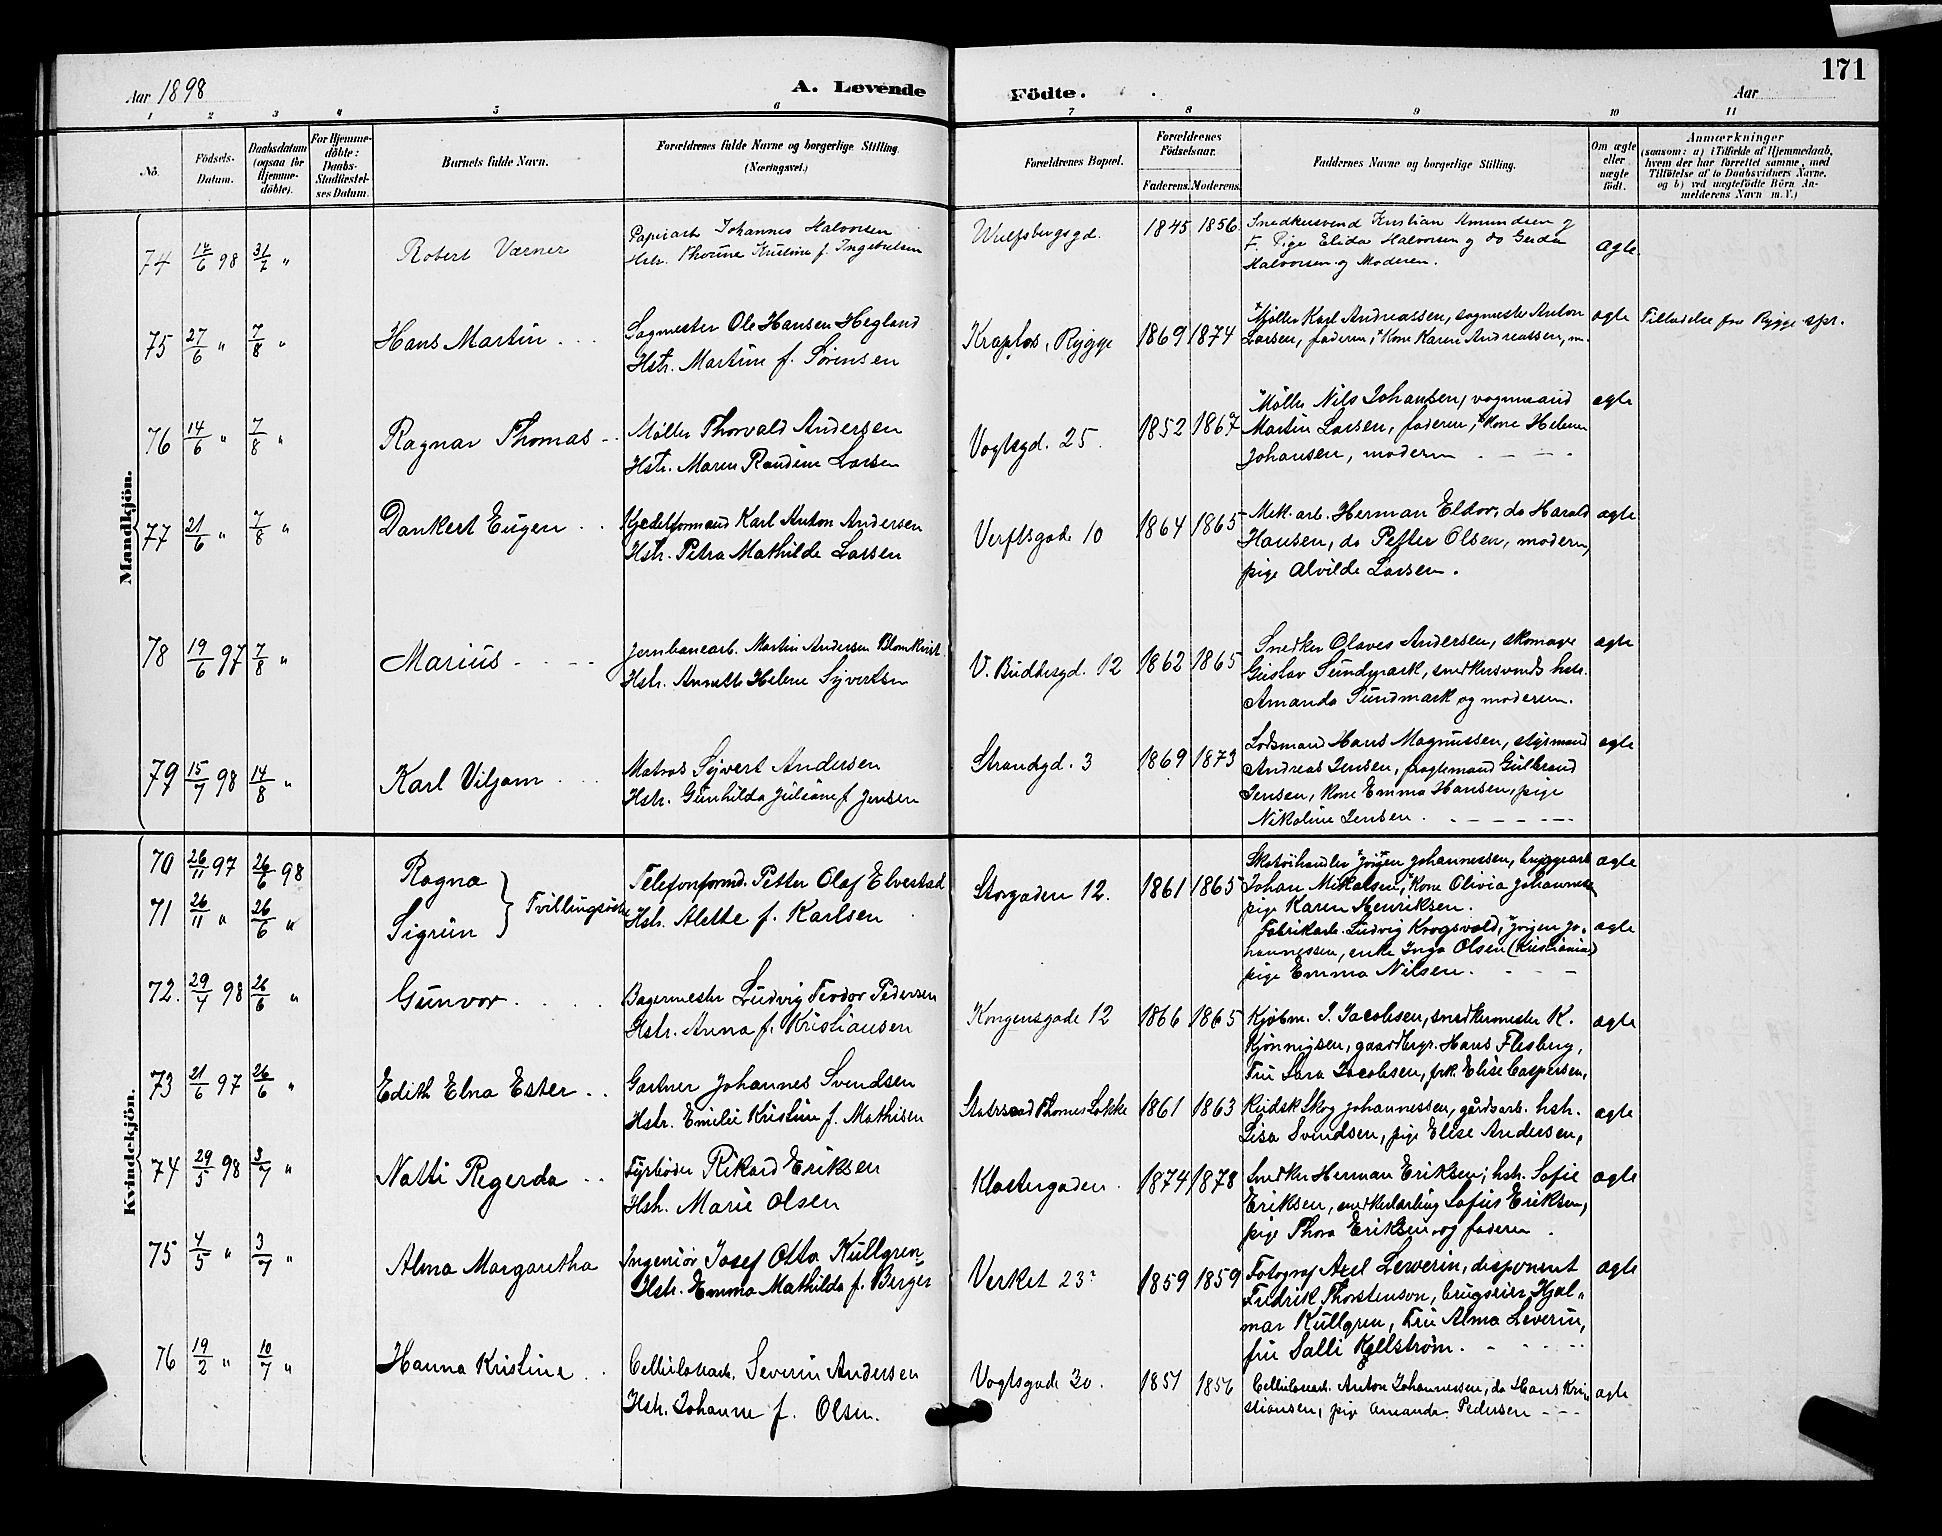 Aar 1898
A. Levende
Födte.
Aar
171
1 2 3 4 5 6 7 8 9 10 11
No.
Födsels-
Datum.
Daabsdatum
(ogsaa for
Hjemme-
döbte).
For Hjemme-
döbte:
Daabs-
Stadfæstel-
ses Datum.
Barnets fulde Navn.
Forældrenes fulde Navne og borgerlige Stilling
(Næringsvei.)
Forældrenes Bopæl.
Forældrenes
Födselsaar.
Faderens. Moderens.
Faddernes Navne og borgerlige Stilling.
Om ægte
eller
uægte
födt.
Anmærkninger
(saasom: a) i Tilfælde af Hjemmedaab,
hvem der har forrettet samme, med
Tilföielse af to Daabsvidners Navne.
og b) ved uægtefödte Börn An-
melderens Navn m. V.)
Mandkjön.
74 14/6 98 31/7 „ Robert Værner
Papirarb. Johannes Halvorsen
Hstr. Thorine Kristine f. Ingebretsen
Wulfsbergsgd. 1845 1856
Snedkersvend Kristian Amundsen og
F. Pige Elida Halvorsen og do Gerda
Halvorsen og Moderen.
ægte.
75 27/6 „ 7/8 „ Hans Martin
Sagmester Ole Hansen Hegland
Hstr. Martine f. Sörensen
Krapfos, Rygge 1869 1874
Møller Karl Andreassen, sagmester Anton
Larsen, faderen, Kone Karen Andreassen, m.
ægte
Tilladelse fra Rygge spr.
76 14/6 „ 7/8 „ Ragnar Thomas
Møller Thorvald Andersen
Hstr. Maren Randine Larsen
Vogtsgd. 25. 1852 1867
Møller Nils Johansen, vognmand
Martin Larsen, faderen, Kone Helene
Johansen, moderen
ægte
77 21/6 „ 7/8 „ Dankert Eugen
Kjedelformand Karl Anton Andersen
Hstr. Petra Mathilde Larsen
Verftsgade 10 1864 1865
Mek. arb. Herman Eldor, do Harald
Hansen, do Petter Olsen, moderen,
pige Alvilde Larsen.
ægte
78 19/6 97 7/8 „ Marius
Jernbanearb. Martin Andersen Blomkvist
Hstr. Annette Helene Syvertsen
V. Buddesgd. 12 1862 1865
Snedker Olaves Andersen, skomager
Gustav Sundmark, snedkersvends hstr.
Amanda Sundmark og moderen.
ægte
79 15/7 98 14/8 „ Karl Viljam
Matros Syvert Andersen
Hstr. Gunhilda Juliane f. Jensen
Strandgd. 3 1869 1873
Lodsmand Hans Magnussen, styrmand
Andreas Jensen, fragtemand Gulbrand
Jensen, Kone Emma Hansen, pige
Nikoline Jensen.
ægte
Kvindekjön.
70 26/11 97 26/6 98 Ragna
71 26/11 „ 26/6 „ Sigrun
Tvillingsøstre
Telefonformd. Petter Olaf Elvestad
Hstr. Alette f. Karlsen
Storgaden 12. 1861 1865
Skotøihandler Jørgen Johannessen, bryggearb.
Johan Mikalsen, Kone Olivia Johannessen
pige Karen Henriksen.
ægte
Fabrikarb. Ludvig Krogsvold, Jørgen Jo-
hannessen, enke Inga Olsen (Kristiania)
pige Emma Nilsen.
ægte
72. 29/4 98 26/6 „ Gunvor
Bagermester Ludvig Teodor Pedersen
Hstr. Anna f. Kristiansen
Kongensgade 12 1866 1865
Kjøbm. J. Jacobsen, snedkermester K.
Kjønnigsen, gaardbrgr. Hans Flesberg,
Fru Sara Jacobsen, frk. Elise Caspersen,
ægte
73 21/6 97 26/6 „ Edith Elna Ester
Gartner Johannes Svendsen
Hstr. Emelie Kristine f. Mathisen
Statsraad Thomes Løkke 1861 1863
Kudsk Skog Johannessen, gårdsarb. hstr.
Lisa Svendsen, pige Elise Andersen,
ægte
74 29/5 98 3/7 „ Natti Regerda
Fyrbøder Rikard Eriksen
Hstr. Marie Olsen
Klostergaden 1874 1878
Snedker Herman Eriksen, hstr. Sofie
Eriksen, snedkerlærling Sofus Eriksen,
pige Thora Eriksen og faderen.
ægte
75 4/5 „ 3/7 „ Alma Margaretha
Ingeniør Josef Otto Kullgren
Hstr. Emma Mathilda f. Berger
Verket 23 1859 1859
Fotograf Axel Leverin, disponent
Fredrik Thorstenson, brugseier Hjal-
mar Kullgren, Fru Alma Leverin,
fru Salli Kjellstrøm.
ægte
76 19/2 „ 10/7 „ Hanna Kristine
Cellulosearb. Severin Andersen
Hstr. Johanne f. Olsen.
Vogtsgade 30. 1851 1856
Cellulosearb. Anton Johannessen, do Hans Kri-
stiansen, pige Amanda Pedersen
ægte